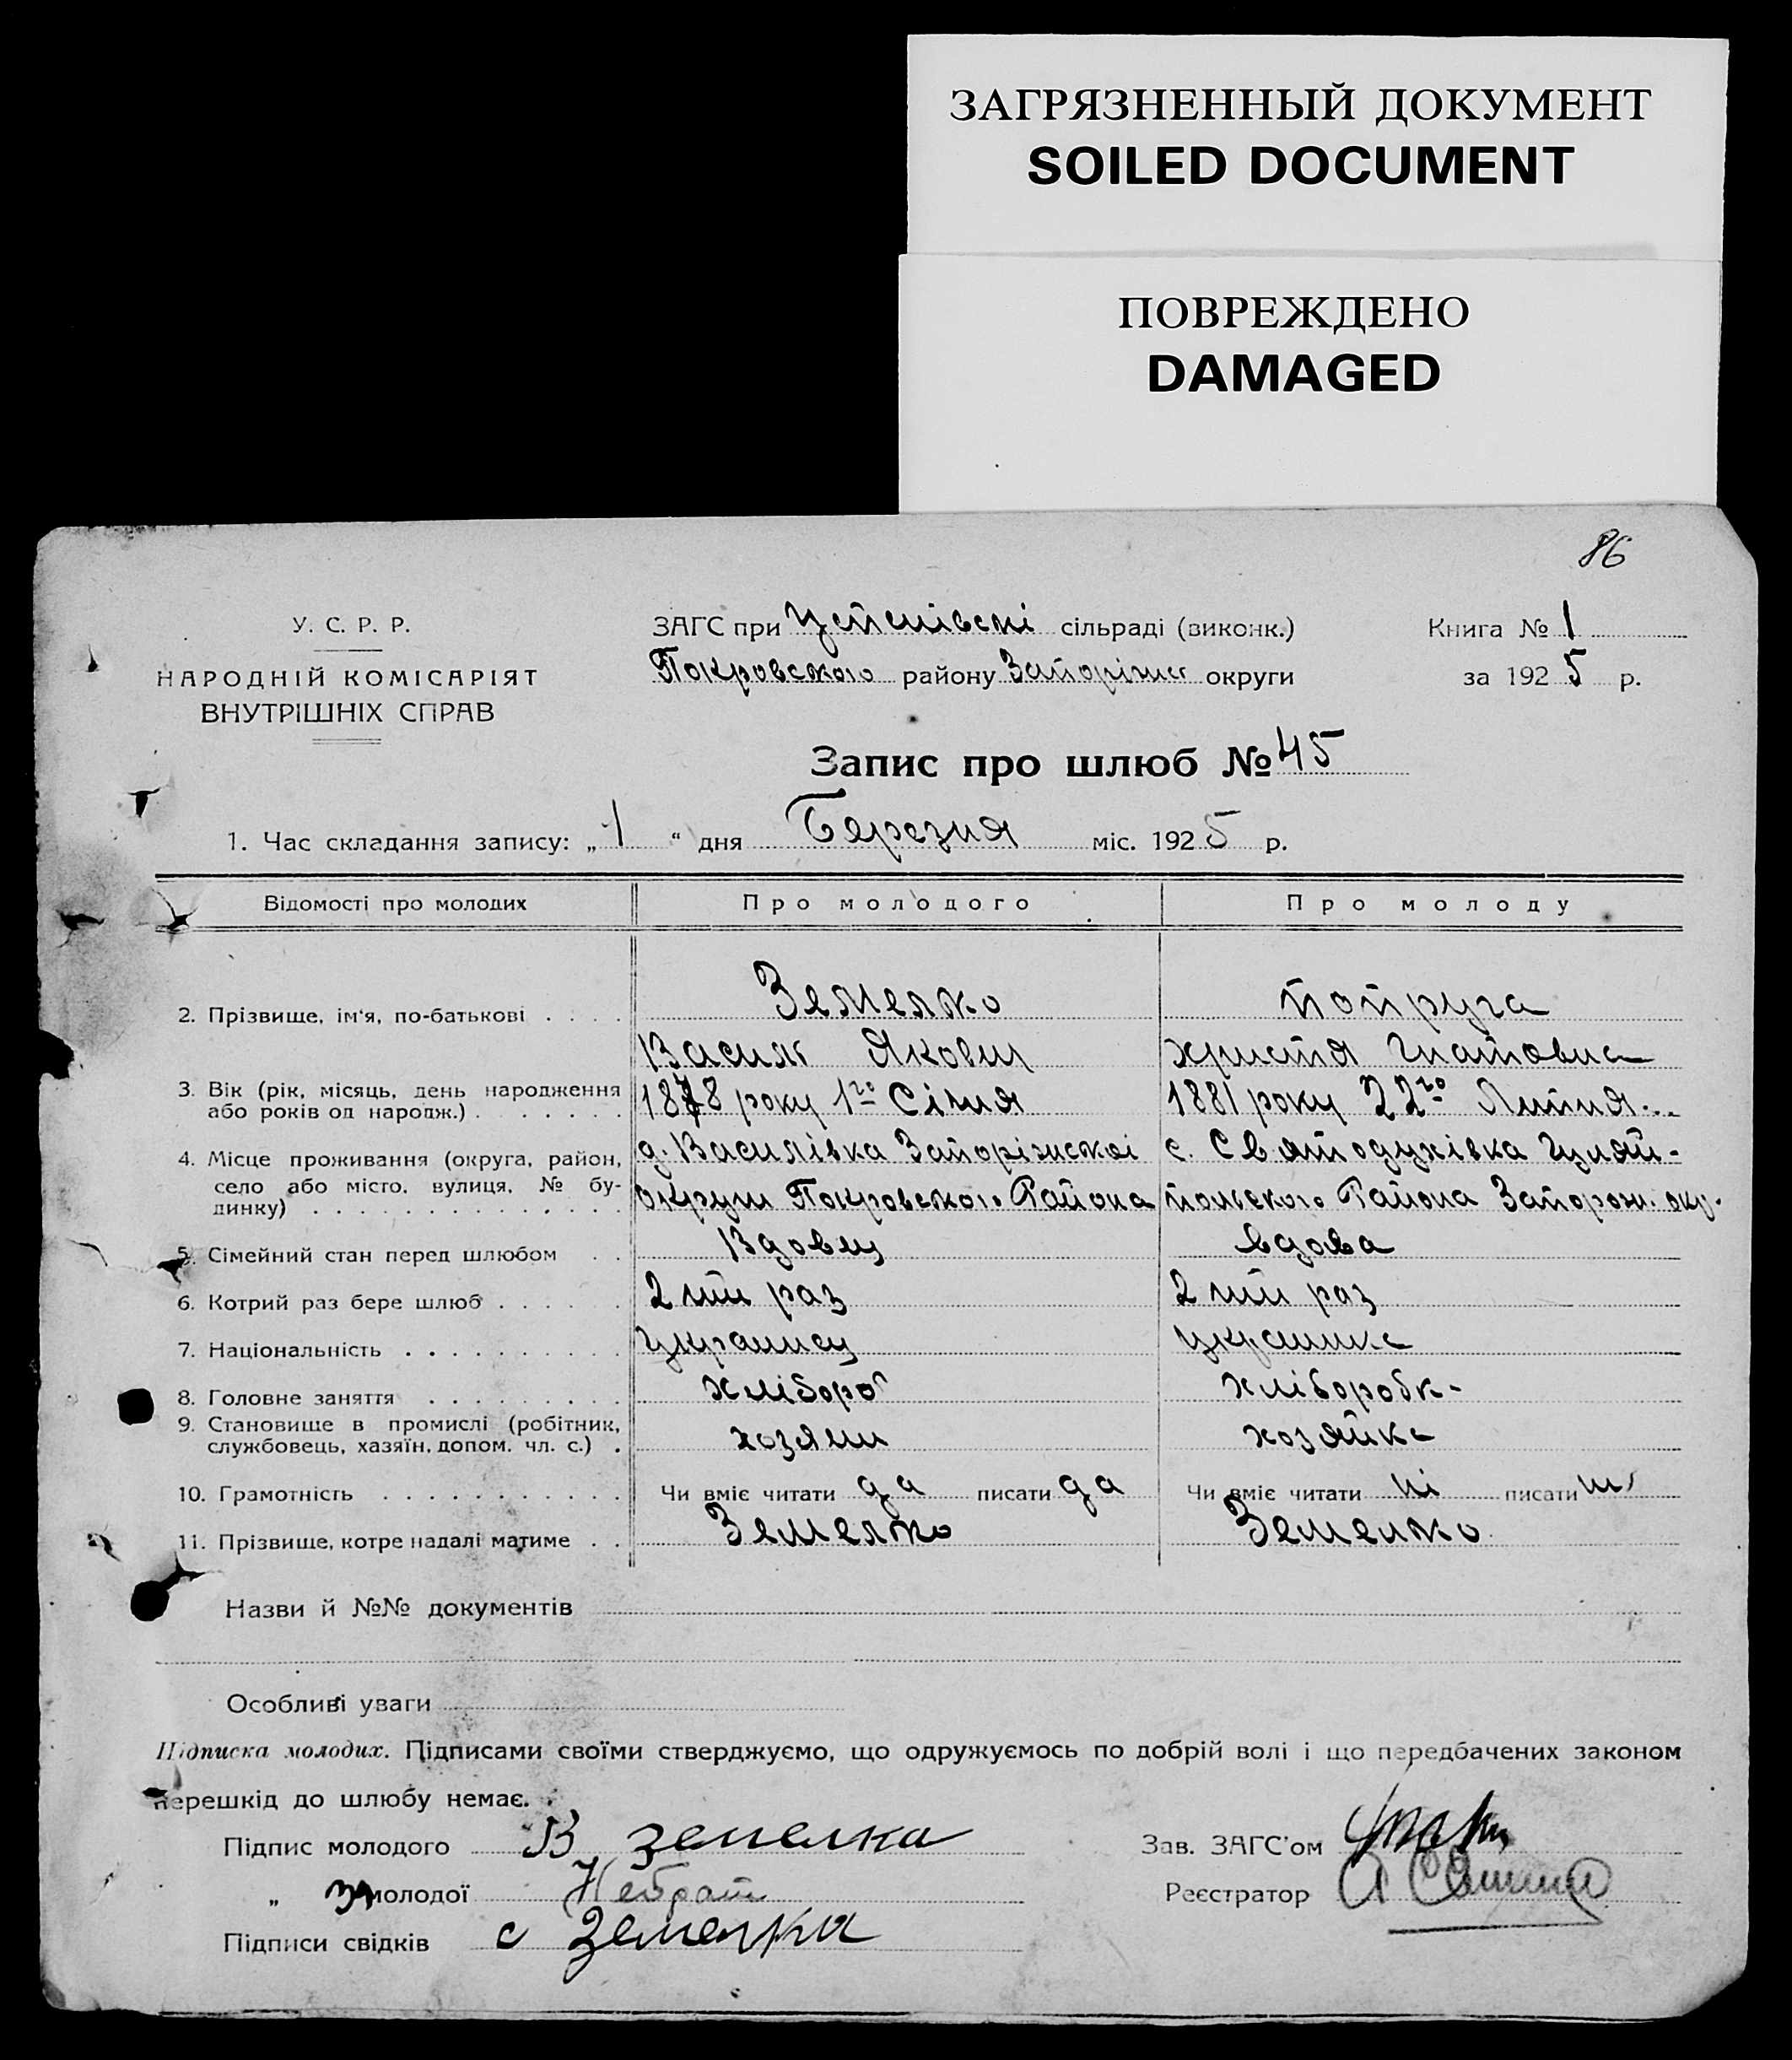 ЗАГРЯЗНЕННЫЙ ДОКУМЕНТ
SOILED DOCUMENT
ПОВРЕЖДЕНО
DAMAGED
86
У. С. Р. Р.
НАРОДНІЙ КОМІСАРІЯТ
ВНУТРІШНІХ СПРАВ
ЗАГС при Успенівскі сільраді (виконк.)
Покровського району Запоріжс округи
Книга № 1
за 1925 р.
Запис про шлюб № 45
1. Час складання запису: „1“ дня Березня міс. 1925 р.
Відомості про молодих Про молодого Про молоду
2. Прізвище, ім‘я, по-батькові . . . . Земелко Попруга
Василь Якович Христя Гнатовна
3. Вік (рік, місяць, день народження 1878 року 1го Січня 1881 року 22го Липня
або років од нарояж.) . . . . . . .
4. Місце проживання (округа, район, д. Василівка Запоріжскоі с. Святодухівка Гуляй-
село або місто, вулиця, № бу- округи Покровського Района польского Района Запорож. окр.
динку) . . . . . . . . . . . . . .
5. Сімейний стан перед шлюбом . . Вдовец вдова
6. Котрий раз бере шлюб . . . . . . 2 гий раз 2 гий раз
7. Національність . . . . . . . . . . Украинец украинка
8. Головне заняття . . . . . . . . . хлібороб хлібородк-
9. Становище в промислі (робітник, хозяин хозяйка
службовець, хазяїн, допом. чл. с.) .
10. Грамотність . . . . . . . . . . . Чи вміє читати да писати да Чи вміє читати ні писати ні
11. Прізвище, котре надалі матиме . . Земелко Земелко
Назви й №№ документів
Особливі уваги
Підписка молодих. Підписами своїми стверджуємо, що одружуємось по добрій волі і що передбачених законом
перешкід до шлюбу немає.
Підпис молодого В земелка
Зав. ЗАГС'ом
„ За молодої
Реєстратор
Підписи свідків с Земелка